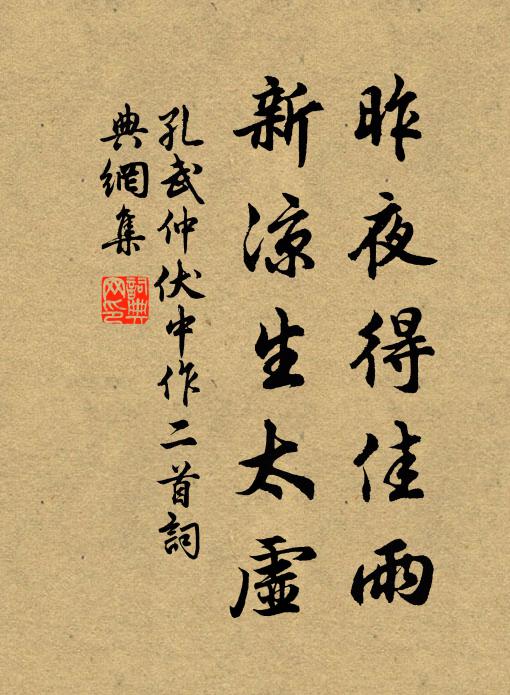 昨夜得佳雨
新涼生太虛
孔武仲伏中作二首詞
典網集
詞典
网印